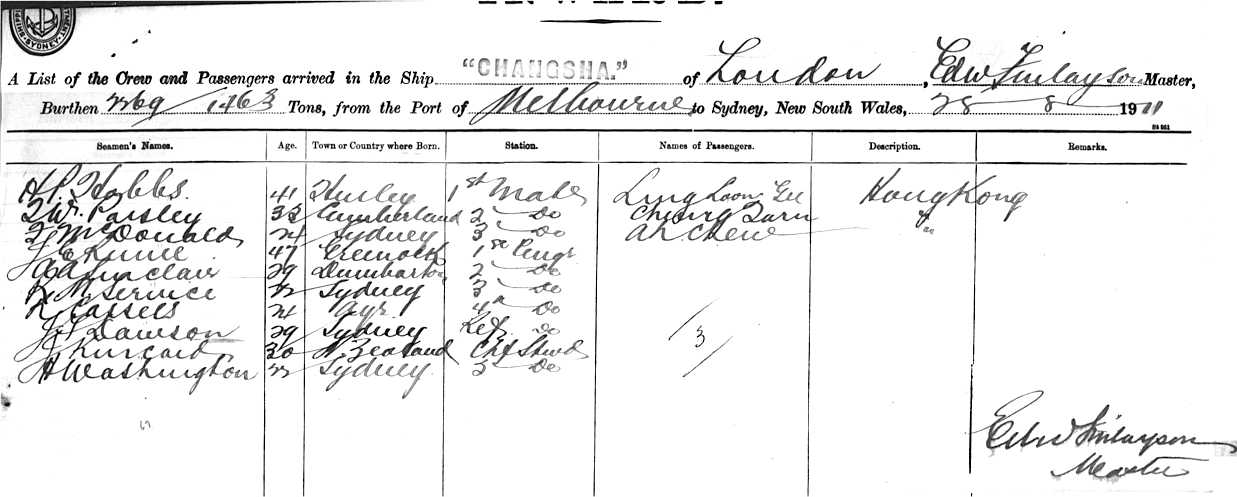 SYDNEY
A List of the Crew and Passengers arrived in the Ship "CHANGSHA." of London, Edw Finlayson Master,
Burthen 2269/1463 Tons, from the Port of Melbourne to Sydney, New South Wales, 28 8 1911
Seamen's Names. Age. Town or Country where Born. Station. Names of Passengers. Description. Remarks.
Hobbs 41 Hurley 1st Mate Ling Loong Hong Kong
Paisley 33 Cumberland 2 Do
McDonald 24 Sydney 3 Do Ah Chew
47 Greenock 1st Engr
Sinclair 29 Dumbarton 2 Do
Service 22 Sydney 3 Do
Cassels 24 Ayr 4th Do
Dawson 29 Sydney Ref Do
Kincaid 30 N. Zealand Chf Stwd
H Washington 22 Sydney 3 Do
/3/
Edw Finlayson
Master